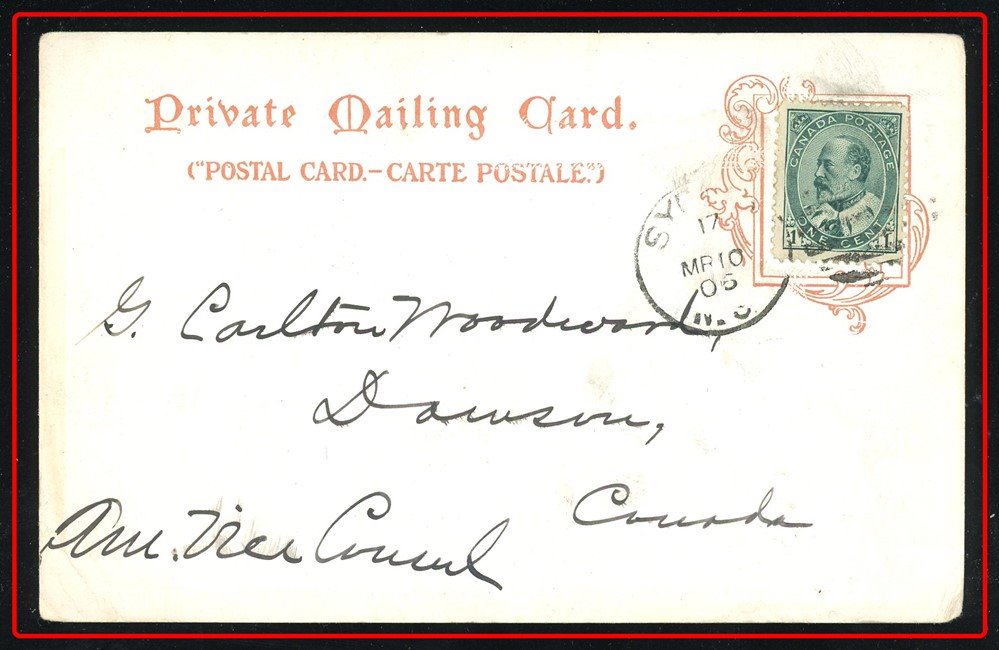 Private Mailing Card.
("POSTAL CARD.–CARTE POSTALE.")
CANADA POSTAGE
ONE CENT
1 1
17
MR 10
05
N.S
G. Carlton Woodward,
Dawson,
Canada
Am. Vice Consul